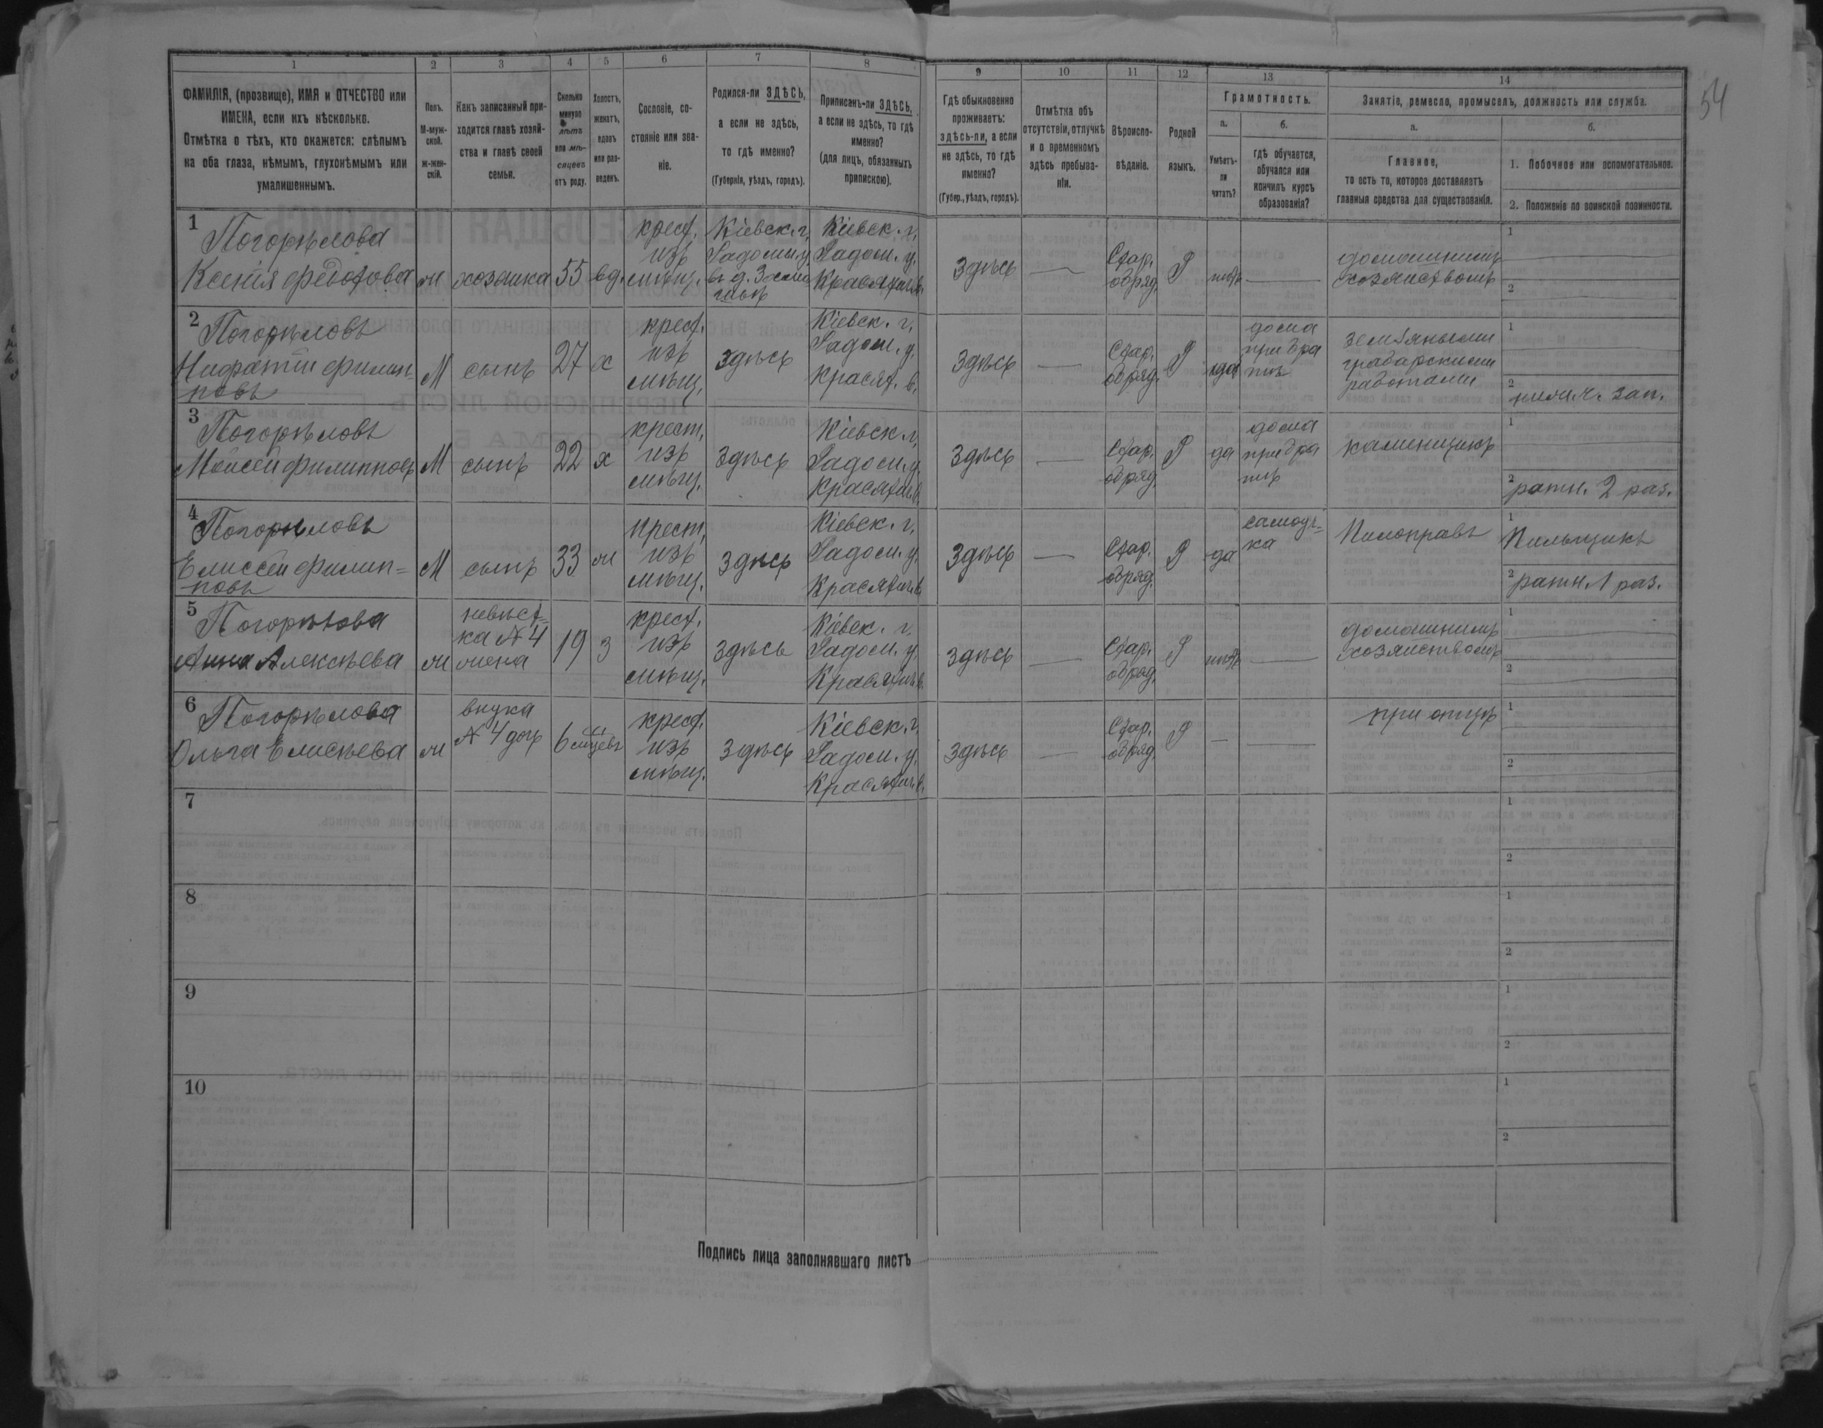 54
1
2
3
4
5
6
7
8
9
10
11
12
13
14
ФАМИЛІЯ, (прозвище), ИМЯ и ОТЧЕСТВО или
ИМЕНА, если ихъ нѣсколько.
Отмѣтка о тѣхъ, кто окажется: слѣпымъ
на оба глаза, нѣмымъ, глухонѣмымъ или
умалишеннымъ.
Полъ.
М-муж-
ской.
ж-жен-
скій.
Какъ записанный при-
ходится главѣ хозяй-
ства и главѣ своей
семьи.
Сколько
минуло
лѣтъ
или мѣ-
сяцевъ
отъ роду.
Холостъ,
женатъ,
вдовъ
или раз-
веденъ.
Сословіе, со-
стояніе или зва-
ніе.
Родился-ли ЗДѢСЬ,
а если не здѣсь,
то гдѣ именно?
(Губернія, уѣздъ, городъ).
Приписанъ-ли ЗДѢСЬ,
а если не здѣсь, то гдѣ
именно?
(для лицъ, обязанныхъ
припискою).
Гдѣ обыкновенно
проживаетъ:
здѣсь-ли, а если
не здѣсь, то гдѣ
именно?
(Губер., уѣздъ, городъ).
Отмѣтка объ
отсутствіи, отлучкѣ
и о временномъ
здѣсь пребыва-
ніи.
Вѣроиспо-
вѣданіе.
Родной
языкъ.
Грамотность.
а.
Умѣетъ-
ли
читать?
б.
гдѣ обучается,
обучался или
кончилъ курсъ
образованія?
Занятіе, ремесло, промыселъ, должность или служба.
а.
Главное,
то есть то, которое доставляетъ
главныя средства для существованія.
б.
1. Побочное или вспомогательное.
2. Положеніе по воинской повинности.
1
Погорѣлова
Ксенія Федотова
ж
хозяйка
55
вд.
крест.
изъ
мѣщ.
Кіевск. г.
Радом. у.
Кіевск. г.
Радом. у.
Красят. в.
здѣсь
Стар.
обряд.
Р
нѣтъ
домашнимъ
хозяйствомъ
1
2
2
Погорѣловъ
Нифатій Филип=
повъ
М
сынъ
27
х
крест.
изъ
мѣщ.
здѣсь
Кіевск. г.
Радом. у.
Красят. в.
здѣсь
Стар.
обряд.
Р
да
дома
при бра
тѣ
земляными
грабарскими
работами
1
2
нижн. зап.
3
Погорѣловъ
Моисей Филипповъ
М
сынъ
22
х
крест.
изъ
мѣщ.
здѣсь
Кіевск. г.
Радом. у.
Красят. в.
здѣсь
Стар.
обряд.
Р
да
дома
при бра
тѣ
каменщикъ
1
2
ратн. 2 раз.
4
Погорѣловъ
Елиссей Филип=
повъ
М
сынъ
33
ж
крест.
изъ
мѣщ.
здѣсь
Кіевск. г.
Радом. у.
Красят. в.
здѣсь
Стар.
обряд.
Р
да
самоуч=
ка
Пилоправъ
1
Пильщикъ
2
ратн. 1 раз.
5
Погорѣлова
Анна Алексѣева
ж
невѣст=
ка №4
жена
19
з
крест.
изъ
мѣщ.
здѣсь
Кіевск. г.
Радом. у.
Красят. в.
здѣсь
Стар.
обряд.
Р
нѣтъ
домашнимъ
хозяйствомъ
1
2
6
Погорѣлова
Ольга Елисѣева
ж
внука
№4 дочь
6 мѣсяцевъ
крест.
изъ
мѣщ.
здѣсь
Кіевск. г.
Радом. у.
Красят. в.
здѣсь
Стар.
обряд.
Р
при отцѣ
1
2
7
1
2
8
1
2
9
1
2
10
1
2
Подпись лица заполнявшаго листъ